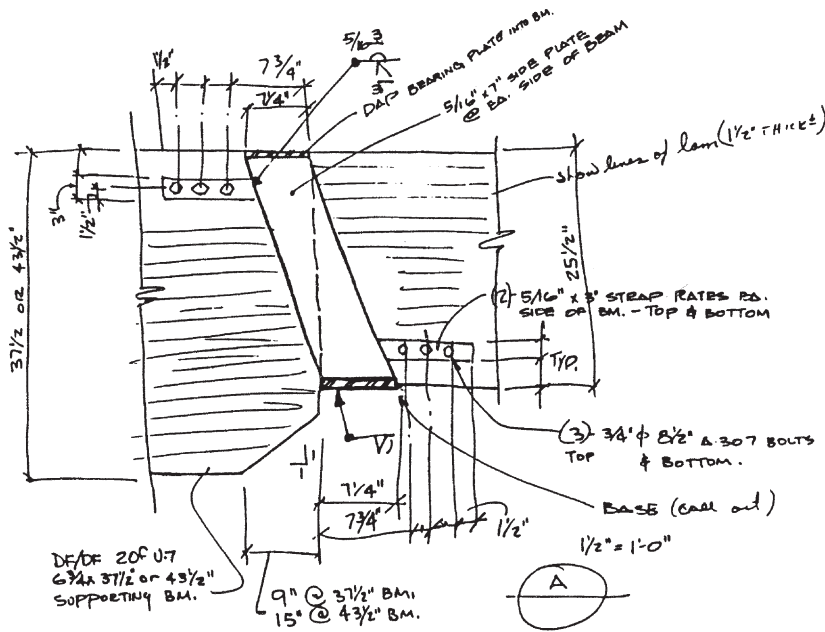 5/16 3
3
DAP BEARING PLATE INTO BM.
1 1/2"
7 3/4"
7 1/4"
5/16" x 7" SIDE PLATE
@ EA. SIDE OF BEAM
show lines of lam (1 1/2" THICK ±)
3"
1 1/2"
37 1/2 OR 43 1/2"
25 1/2"
(2)- 5/16" x 3" STRAP PLATES EA.
SIDE OF BM. - TOP & BOTTOM
TYP.
(3)- 3/4" φ 8 1/2" A.307 BOLTS
TOP & BOTTOM.
V
1
7 1/4"
7 3/4"
1 1/2"
BASE (call out)
1 1/2" = 1'-0"
A
DF/DF 20f V-7
6 3/4 x 37 1/2" or 43 1/2"
SUPPORTING BM.
9" @ 37 1/2" BM.
15" @ 43 1/2" BM.